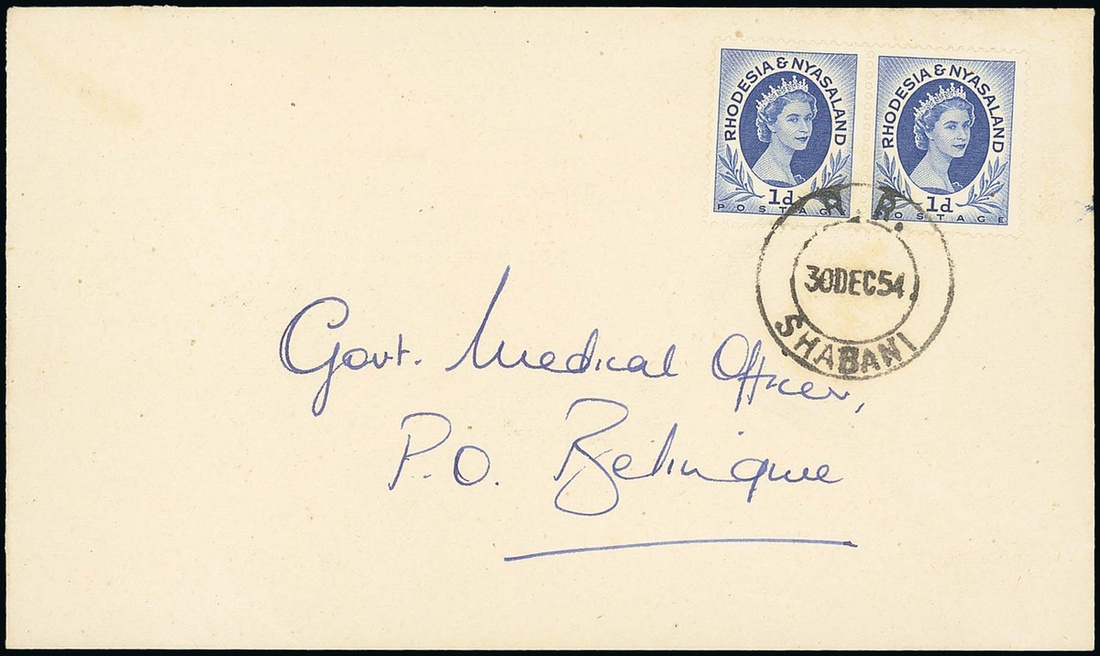 RHODESIA & NYASALAND
1d
POSTAGE
RHODESIA & NYASALAND
1d
POSTAGE
R. R.
30 DEC 54
SHABANI
Govt. Medical Officer,
P.O. Belingwe